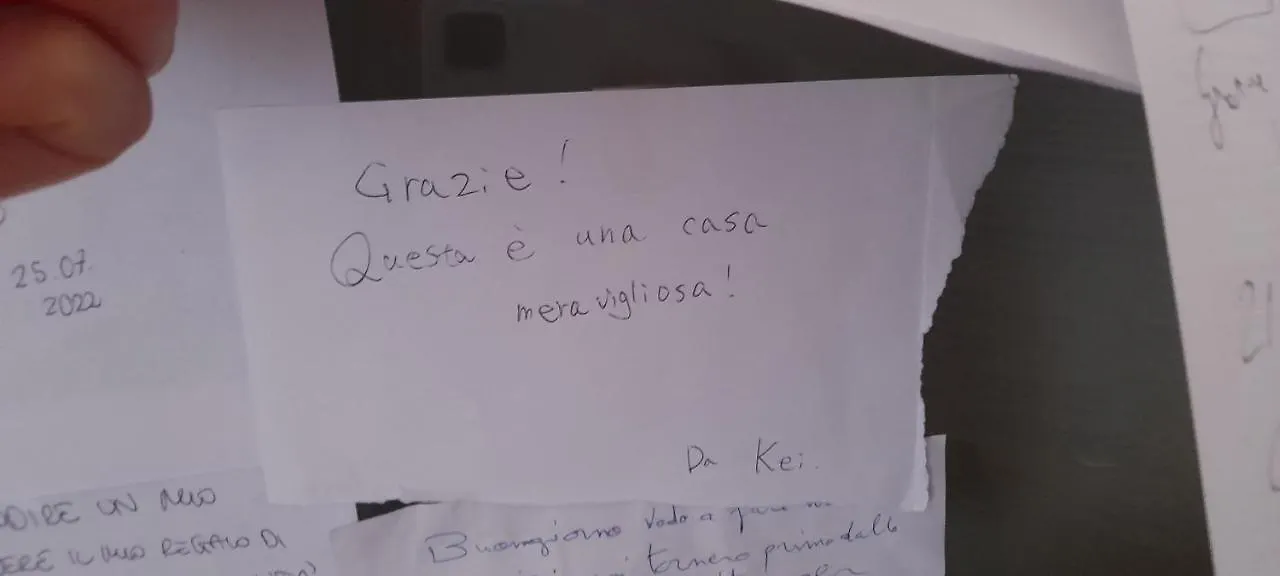 Grazie!
Questa è una casa
meravigliosa!
Da Kei.
25.07.
2022
DIRE UN MIO
ERE IL MIO REGALO DI
Buongiorno Vado a
tornerò prima dalle